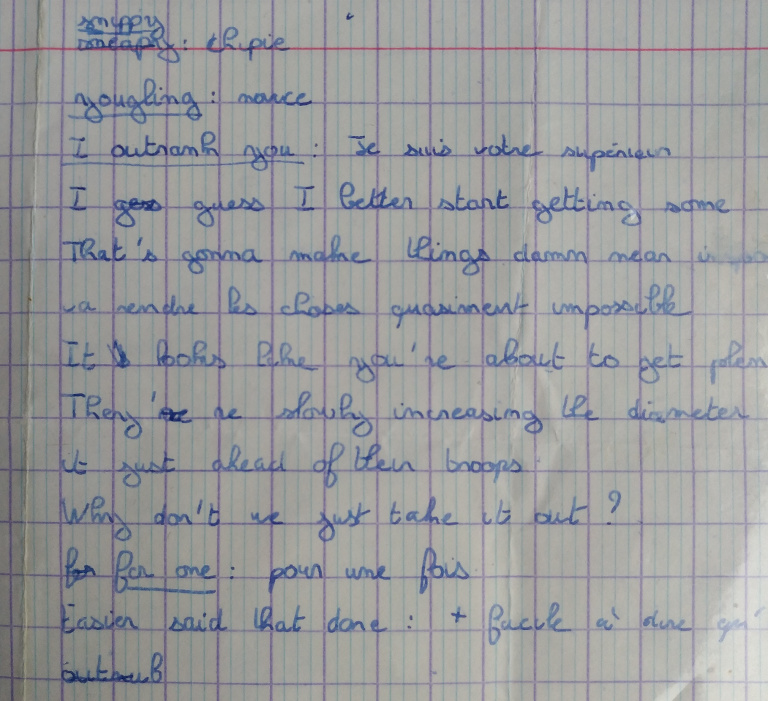 snippy
: chipie
yougling : novice
I outrank you : Je suis votre supérieur
I guess I better start getting some
That's gonna make things damm near impo
va rendre les choses quasiment impossible
It looks like you're about to get plen
They're slowly increasing the diameter
it just ahead of their troops
Why don't we just take it out ?
for one : pour une fois
Easier said that done : + facile à dire qu'